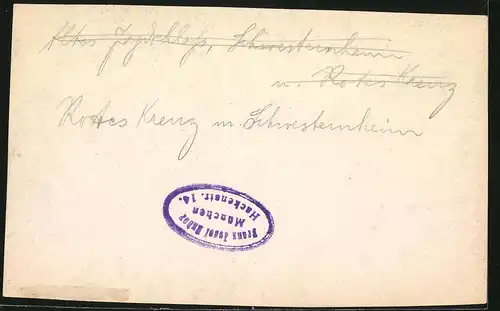 Altes Jagdschloss, Schwesternheim
u. Rotes Kreuz
Rotes Kreuz m. Schwesternheim
Franz Josef Huber
München
Hackenstr. 14.